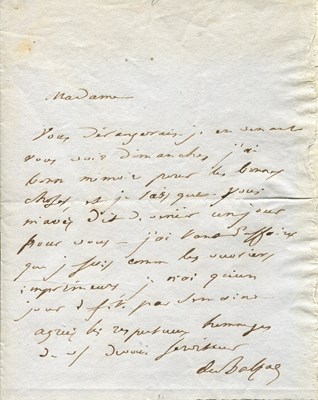 Madame
Vous dérangerais-je en venant
vous voir dimanche, j'ai
bonne mémoire pour les bonnes
choses et je sais que vous
m'avez dit d'avoir un jour
pour vous — j'ai tant d'affaires
que je suis comme les ouvriers
imprimeurs je n'ai qu'un
jour de fête par semaine
agréez les respectueux hommages
de votre dévoué serviteur
de Balzac